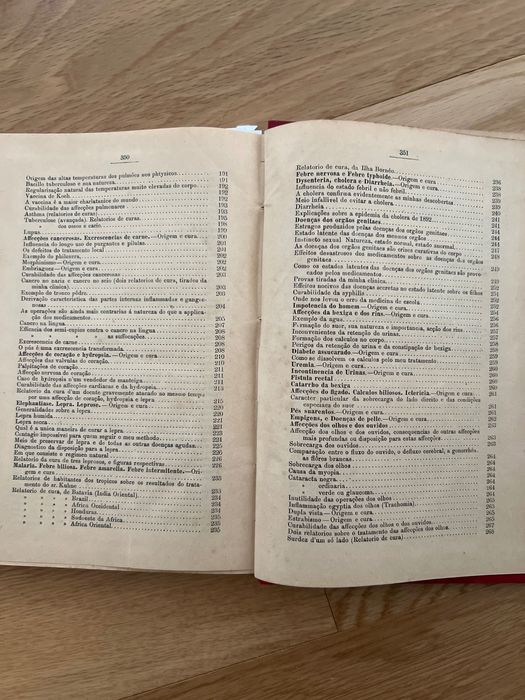 350
Origem das altas temperaturas do pulmões nos phtysicos. 191
Bacillo tuberculoso e sua natureza. 191
Regularisação natural das temperaturas muito elevadas do corpo. 192
Vaccina de Koch. 192
A vaccina é a maior charlatanice do mundo 192
Curabilidade das affecções pulmonares 193
Asthma (relatorios de cura) 195
Tuberculose (avançada) Relatorios de curas.
dos ossos e carie.
Lupus 199
Affecções cancerosas. Excrescencias de carne.—Origem e cura. 200
Influencia do longo uso de purgantes e pilulas. 201
Os defeitos do tratamento local 201
Exemplo do philloxera. 202
Morphinismo.—Origem e cura
Embriaguez—Origem e cura
Curabilidade das affecções cancerosas 203
Cancro no nariz e cancro no seio (dois relatorios de cura, tirados da
minha clinica) 203
Exemplo do tronco pôdre
Derivação caracteristica das partes internas inflammadas e gangre-
nosas
As operações são ainda mais contrarias á natureza do que a applica-
ção dos medicamentos. 205
Cancro na lingua 207
Efficacia dos semi-cupios contra o cancro na lingua 208
as suffocações. 208
Excrescencia de carne
O pús é uma excrescencia transformada. 208
Affecções do coração e hydropsia.—Origem e cura 209
Affecções das valvulas do coração. 210
Palpitações do coração 211
Affecção nervosa do coração 211
Caso de hydropsia n'um vendedor de manteiga 211
Curabilidade das affecções cardiacas e da hydropsia. 212
Relatorio da cura d'um doente gravemente atacado ao mesmo tempo
por uma affecção do coração, hydropsia e lepra
Elephantiase. Lepra. Leprose.—Origem e cura 215
Generalidades sobre a lepra. 218
Lepra humida 219
Lepra secca
Qual é a maior maneira de curar a lepra 220
Contagio impossivel para quem seguir o meu methodo. 221
Meio de preservar de lepra e de todas as outras doenças agudas. 222
Diagnostico da disposição para a lepra. 223
Em que consiste o regimen natural 223
Relatorio da cura de tres leprosos, e figuras respectivas
Malaria. Febre biliosa. Febre amarella. Febre intermittente.—Ori-
gem e cura 226
Relatorios de habitantes dos tropicos sobre os resultados do trata-
mento do sr. Kuhne 233
Relatorio de cura, de Batavia (India Oriental). 233
» » » Brazil 234
» » » Africa Occidental 234
» » » Honduras. 235
» » » Sudoeste da Africa. 235
» » » Africa Oriental. 235
351
Relatorio de cura, da Ilha Bornéo.
Febre nervosa e Febre typhoide.—Origem e cura 236
Dysenteria, cholera e Diarrheia.—Origem e cura 238
Influencia do estado febril e não febril. 239
A cholera confirma evidentemente as minhas descobertas 239
Meio infallivel de evitar a cholera 240
Diarrheia—Origem e cura. 240
Explicações sobre a epidemia do cholera de 1892. 241
Doenças dos orgãos genitaes.—Origem e cura 244
Estragos produzidos pelas doenças dos orgãos genitaes 245
Estado latente das doenças dos mesmos orgãos 246
Instincto sexual. Natureza, estado normal, estado anormal 247
As doenças dos orgãos genitaes são crises curativas do corpo 248
Effeitos desastrosos dos medicamentos sobre as doenças dos orgãos
genitaes
Como os estados latentes das doenças dos orgãos genitaes são provo-
cados pelos medicamentos. 249
Provas tiradas da minha clinica
Effeitos nocivos das doenças secretas ao estado latente sobre os filhos 252
Curabilidade da syphilis 252
Onde nos levou o erro da medicina de escola 253
Impotencia do homem—Origem e cura. 254
Affecções da bexiga e dos rins.—Origem e cura 255
Exemplo da agua. 256
Formação do suor, sua natureza e importancia, acção dos rins 256
Inconvenientes da retenção de urinas. 257
Formação dos calculos no corpo. 258
Perigos da retenção de urina e da constipação de bexiga. 258
Diabete assucarado.—Origem e cura 259
Como se dissolvem os calculos pelo meu tratamento 259
Uremia.—Origem e cura 260
Incontinencia de Urinas.—Origem e cura 260
Fistula rectal 260
Catarrho da bexiga 260
Affecções do figado. Calculos biliosos. Ictericia.—Origem e cura. 261
Caracter particular da sobrecarga do lado direito e das condições
especiaes do suor. 261
Pés suarentos.—Origem e cura 261
Empigens, e Doenças de pelle.—Origem e cura 262
Affecções dos olhos e dos ouvidos 263
Affecção dos olhos e dos ouvidos, consequencias de outras affecções
mais profundas ou disposição para estas affecções 263
Sobrecarga dos ouvidos 263
Comparação entre o fluxo do ouvido, o defluxo cerebral, o gonorrhéa,
as flores brancas 264
Sobrecarga dos olhos 264
Causa da myopia 264
Cataracta negra. 264
» ordinaria 264
» verde ou glaucoma. 265
Inutilidade das operações dos olhos 265
Inflammação egyptia dos olhos (Trachomia). 265
Dupla vista—Origem e cura 265
Estrabismo—Origem e cura. 265
Curabilidade das affecções dos olhos e dos ouvidos. 267
Dois relatorios sobre o tratamento das affecções dos olhos. 268
Surdez d'um só lado (Relatorio de cura)